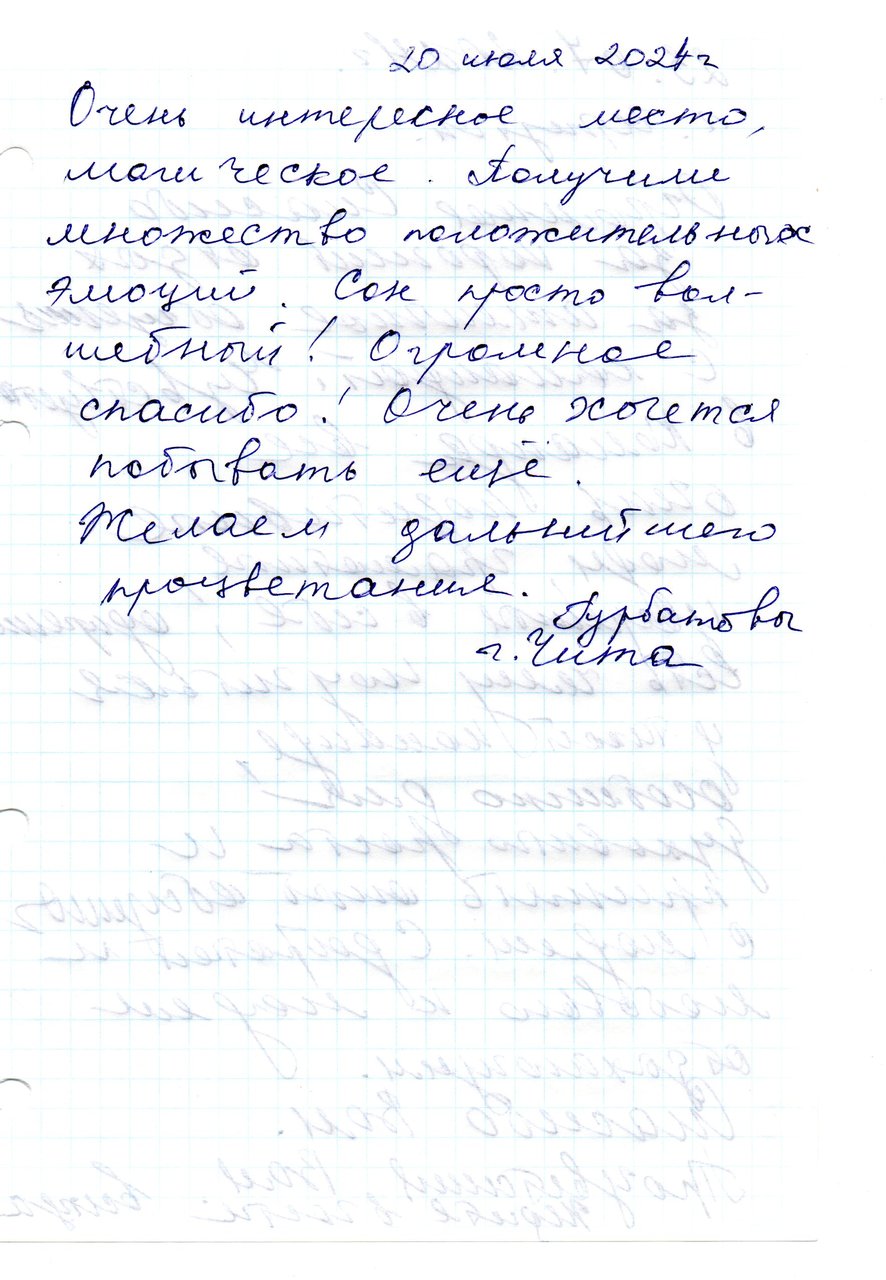 20 июля 2024г
Очень интересное место,
магическое. Получили
множество положительных
эмоций. Сон просто вол-
шебный! Огромное
спасибо! Очень хочется
побывать ещё.
Желаем дальнийшего
процветания.
г. Чита